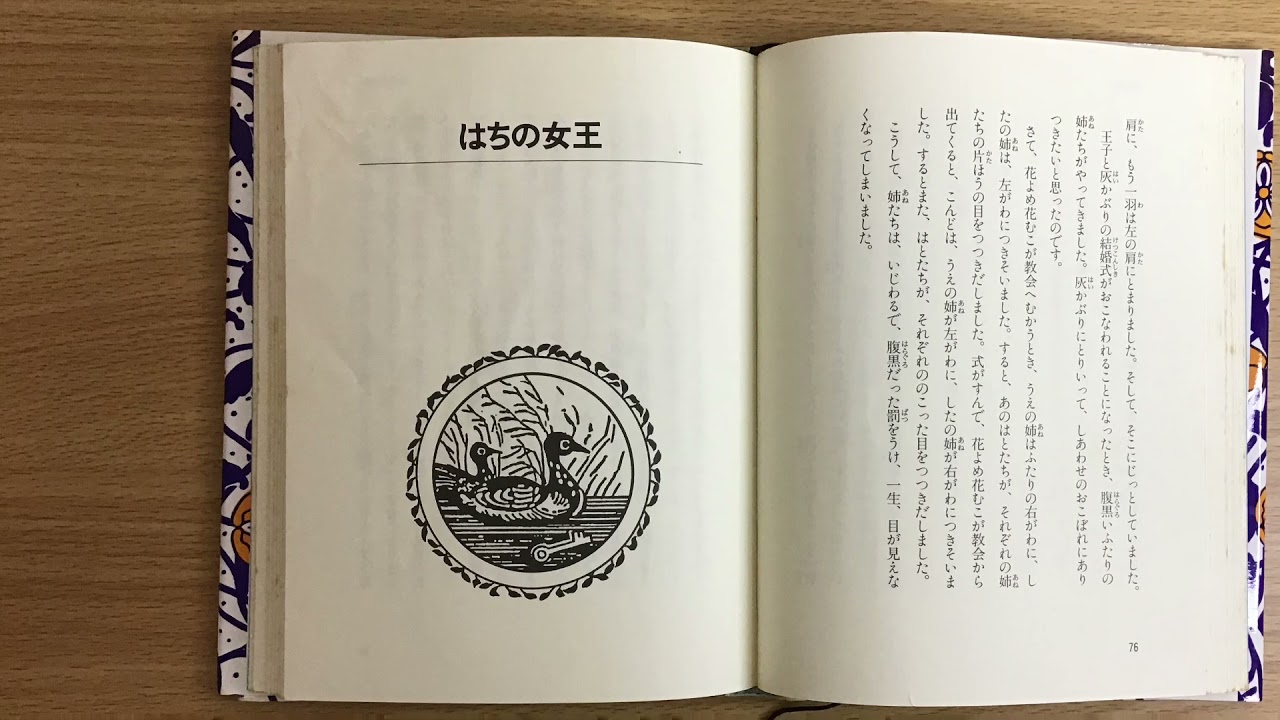 肩に、もう一羽は左の肩にとまりました。そして、そこにじっとしていました。
王子と灰かぶりの結婚式がおこなわれることになったとき、腹黒いふたりの
姉たちがやってきました。灰かぶりにとりいって、しあわせのおこぼれにあり
つきたいと思ったのです。
さて、花よめ花むこが教会へむかうとき、うえの姉はふたりの右がわに、し
たの姉は、左がわにつきそいました。すると、あのはとたちが、それぞれの姉
たちの片ほうの目をつつきだしました。式がすんで、花よめ花むこが教会から
出てくると、こんどは、うえの姉が左がわに、したの姉が右がわにつきそいま
した。するとまた、はとたちが、それぞれののこった目をつつきだしました。
こうして、姉たちは、いじわるで、腹黒だった罰をうけ、一生、目が見えな
くなってしまいました。
76
はちの女王